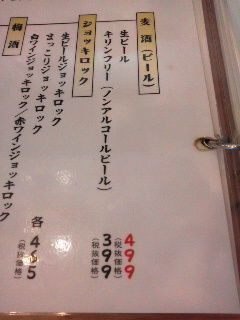 麦酒(ビール)
生ビール 499(税抜価格)
キリンフリー(ノンアルコールビール) 399(税抜価格)
ジョッキロック
生ビールジョッキロック
まっこりジョッキロック
白ワインジョッキロック/赤ワインジョッキロック
各 445(税抜価格)
梅酒